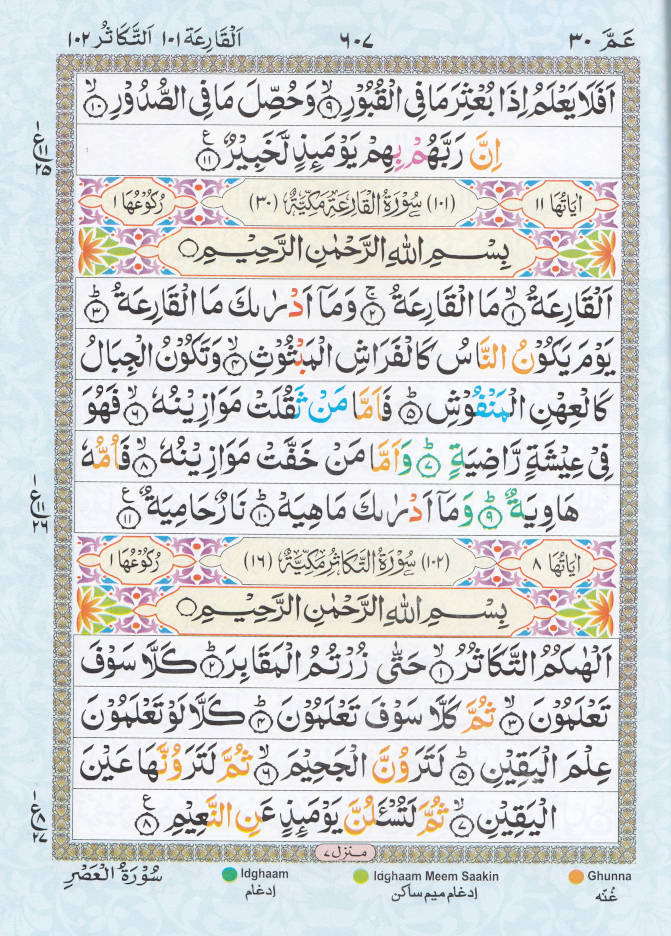 عَمَّ ٣٠ ٦٠٧ اَلْقَارِعَة ١٠١ اَلتَّكَاثُر ١٠٢
اَفَلَا يَعْلَمُ اِذَا بُعْثِرَ مَا فِى الْقُبُوْرِ ۙ﴿۹﴾ وَحُصِّلَ مَا فِى الصُّدُوْرِ ۙ﴿۱۰﴾
اِنَّ رَبَّهُمْ بِهِمْ يَوْمَئِذٍ لَّخَبِيْرٌ ﴿۱۱﴾
اٰيَاتُهَا ١١ (١٠١) سُوْرَةُ الْقَارِعَةِ مَكِّيَّةٌ (٣٠) رُكُوْعُهَا ١
بِسْمِ اللّٰهِ الرَّحْمٰنِ الرَّحِيْمِ
اَلْقَارِعَةُ ۙ﴿۱﴾ مَا الْقَارِعَةُ ۚ﴿۲﴾ وَمَاۤ اَدْرٰىكَ مَا الْقَارِعَةُ ؕ﴿۳﴾
يَوْمَ يَكُوْنُ النَّاسُ كَالْفَرَاشِ الْمَبْثُوْثِ ۙ﴿۴﴾ وَتَكُوْنُ الْجِبَالُ
كَالْعِهْنِ الْمَنْفُوْشِ ؕ﴿۵﴾ فَاَمَّا مَنْ ثَقُلَتْ مَوَازِيْنُهٗ ۙ﴿۶﴾ فَهُوَ
فِىْ عِيْشَةٍ رَّاضِيَةٍ ؕ﴿۷﴾ وَاَمَّا مَنْ خَفَّتْ مَوَازِيْنُهٗ ۙ﴿۸﴾ فَاُمُّهٗ
هَاوِيَةٌ ؕ﴿۹﴾ وَمَاۤ اَدْرٰىكَ مَاهِيَهْ ؕ﴿۱۰﴾ نَارٌ حَامِيَةٌ ﴿۱۱﴾
اٰيَاتُهَا ٨ (١٠٢) سُوْرَةُ التَّكَاثُرِ مَكِّيَّةٌ (١٦) رُكُوْعُهَا ١
بِسْمِ اللّٰهِ الرَّحْمٰنِ الرَّحِيْمِ
اَلْهٰىكُمُ التَّكَاثُرُ ۙ﴿۱﴾ حَتّٰى زُرْتُمُ الْمَقَابِرَ ؕ﴿۲﴾ كَلَّا سَوْفَ
تَعْلَمُوْنَ ۙ﴿۳﴾ ثُمَّ كَلَّا سَوْفَ تَعْلَمُوْنَ ؕ﴿۴﴾ كَلَّا لَوْ تَعْلَمُوْنَ
عِلْمَ الْيَقِيْنِ ؕ﴿۵﴾ لَتَرَوُنَّ الْجَحِيْمَ ۙ﴿۶﴾ ثُمَّ لَتَرَوُنَّهَا عَيْنَ
الْيَقِيْنِ ۙ﴿۷﴾ ثُمَّ لَتُسْئَلُنَّ يَوْمَئِذٍ عَنِ النَّعِيْمِ ﴿۸﴾
منزل ٧
سُوْرَةُ الْعَصْرِ
Idghaam Idghaam Meem Saakin Ghunna
ادغام ادغام میم ساکن غُنّه
ع ١١ ٢٥
ع ١١ ٢٦
ع ٨ ٢٧